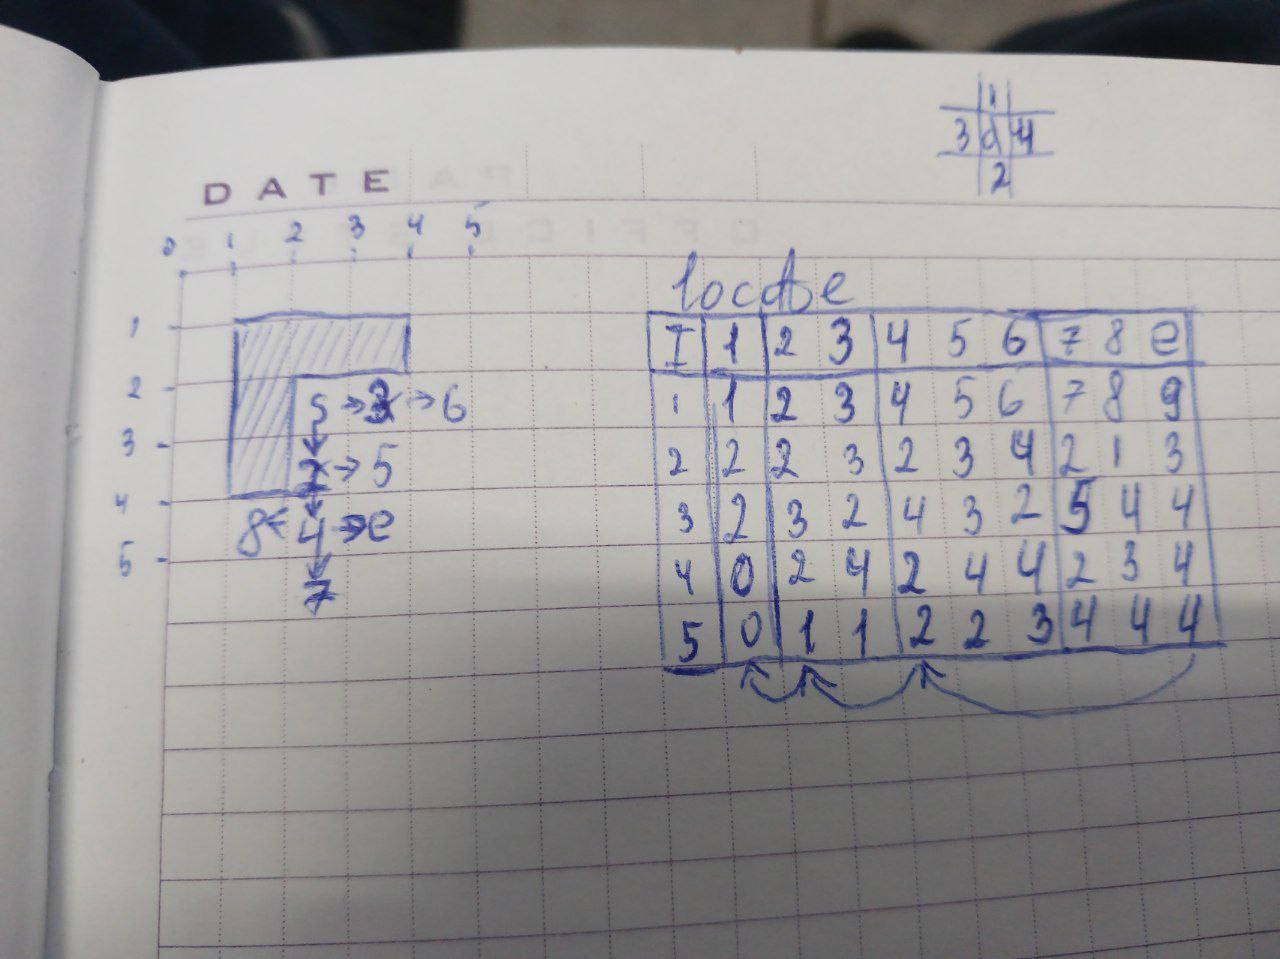 1
3 d 4
2
DATE
0 1 2 3 4 5
locate
1
2
3
4
5
s → 3 → 6
2 → 5
8 ← 4 → e
7
I 1 2 3 4 5 6 7 8 e
1 1 2 3 4 5 6 7 8 9
2 2 2 3 2 3 4 2 1 3
3 2 3 2 4 3 2 5 4 4
4 0 2 4 2 4 4 2 3 4
5 0 1 1 2 2 3 4 4 4